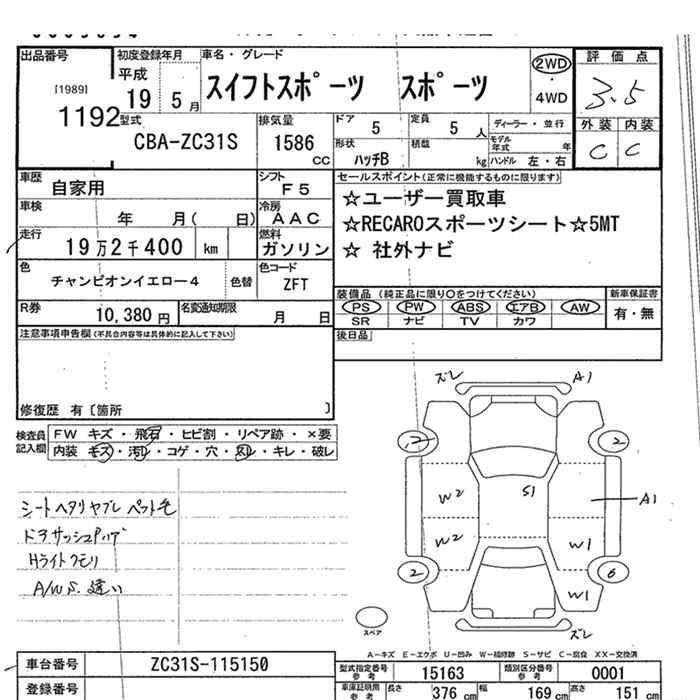 出品番号
[1989]
1192
初度登録年月
平成
19 5 月
車名・グレード
スイフトスポーツ スポーツ
2WD
・
4WD
評価点
3.5
外装 内装
C C
型式
CBA-ZC31S
排気量
1586
CC
ドア
5
定員
5 人
ディーラー・並行
モデル年式 年
形状
ハッチB
積載
kg
ハンドル 左・右
車歴
自家用
シフト
F5
車検
年 月( 日)
冷房
AAC
走行
19万2千400 km
燃料
ガソリン
色
チャンピオンイエロー4
色替
色コード
ZFT
R券
10,380 円
名変通知期限
月 日
セールスポイント(正常に機能するものに限ります)
☆ユーザー買取車
☆RECAROスポーツシート☆5MT
☆ 社外ナビ
装備品 (純正品に限り○をつけてください)
PS PW ABS エアB AW
SR ナビ TV カワ
新車保証書
有・無
注意事項申告欄(不具合内容等は具体的に記入して下さい)
後日品
修復歴 有〔箇所 〕
検査員記入欄
FW キズ・飛石・ヒビ割・リペア跡・×要
内装 キズ・汚レ・コゲ・穴・スレ・キレ・破レ
シートヘタリヤブレ ペット毛
ドアサッシュ
Hライトクモリ
A/W S.違い
ズレ A1
2 2
W2 S1 A1
W2 W1
2 6
W1
ズレ
スペア
A-キズ E-エクボ U-凹み W-補修跡 S-サビ C-腐食 XX-交換済
車台番号
ZC31S-115150
登録番号
型式指定番号
参考
15163
類別区分番号
参考
0001
車庫証明用
参考
長さ
376 cm
幅
169 cm
高さ
151 cm